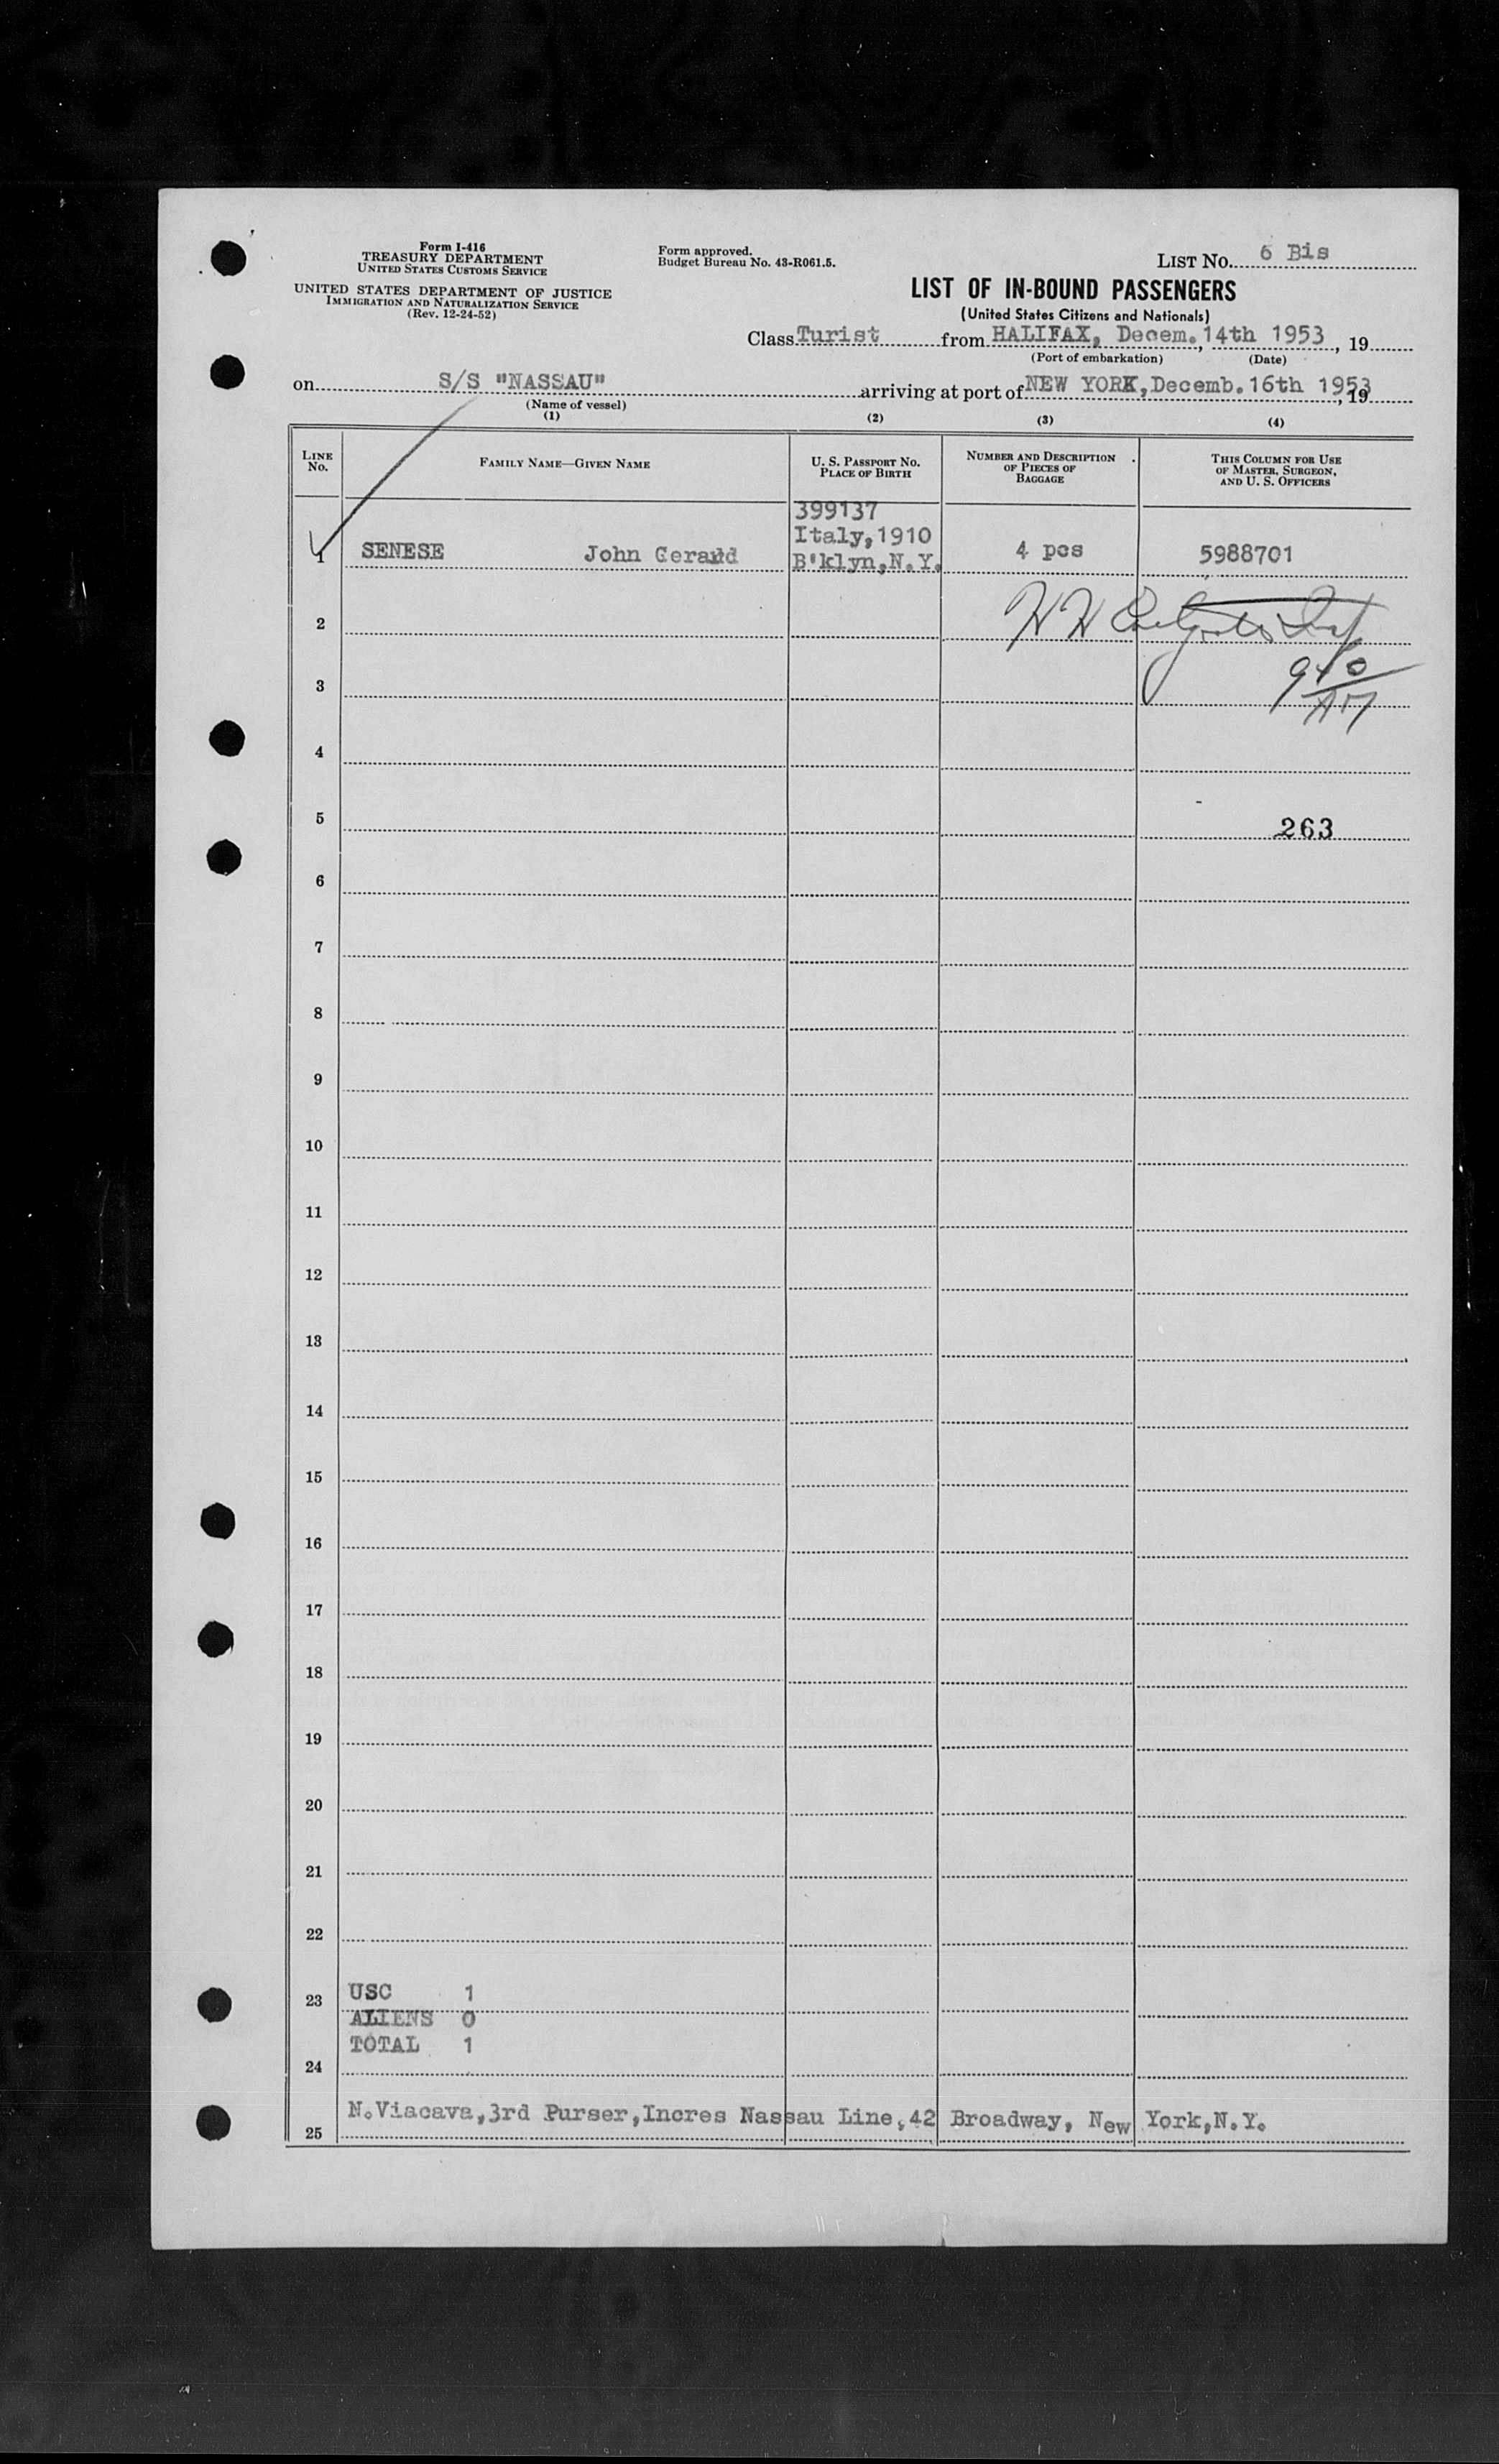 Form I-416
TREASURY DEPARTMENT
UNITED STATES CUSTOMS SERVICE
UNITED STATES DEPARTMENT OF JUSTICE
IMMIGRATION AND NATURALIZATION SERVICE
(Rev. 12-24-52)
Form approved.
Budget Bureau No. 43-R061.5.
LIST NO. 6 Bis
LIST OF IN-BOUND PASSENGERS
(United States Citizens and Nationals)
Class Turist from HALIFAX, Decem. 14th 1953, 19
(Port of embarkation) (Date)
on S/S "NASSAU" arriving at port of NEW YORK, Decemb. 16th 1953, 19
(Name of vessel)
(1) (2) (3) (4)
LINE NO. FAMILY NAME—GIVEN NAME U. S. PASSPORT NO. PLACE OF BIRTH NUMBER AND DESCRIPTION OF PIECES OF BAGGAGE THIS COLUMN FOR USE OF MASTER, SURGEON, AND U. S. OFFICERS
399137
Italy, 1910
1 SENESE John B'klyn, N.Y. 4 pcs 5988701
2
3
940
4
5 263
6
7
8
9
10
11
12
13
14
15
16
17
18
19
20
21
22
23 USC 1
ALIENS 0
TOTAL 1
24
N. Viacava, 3rd Purser, Incres Nassau Line, 42 Broadway, New York, N.Y.
25